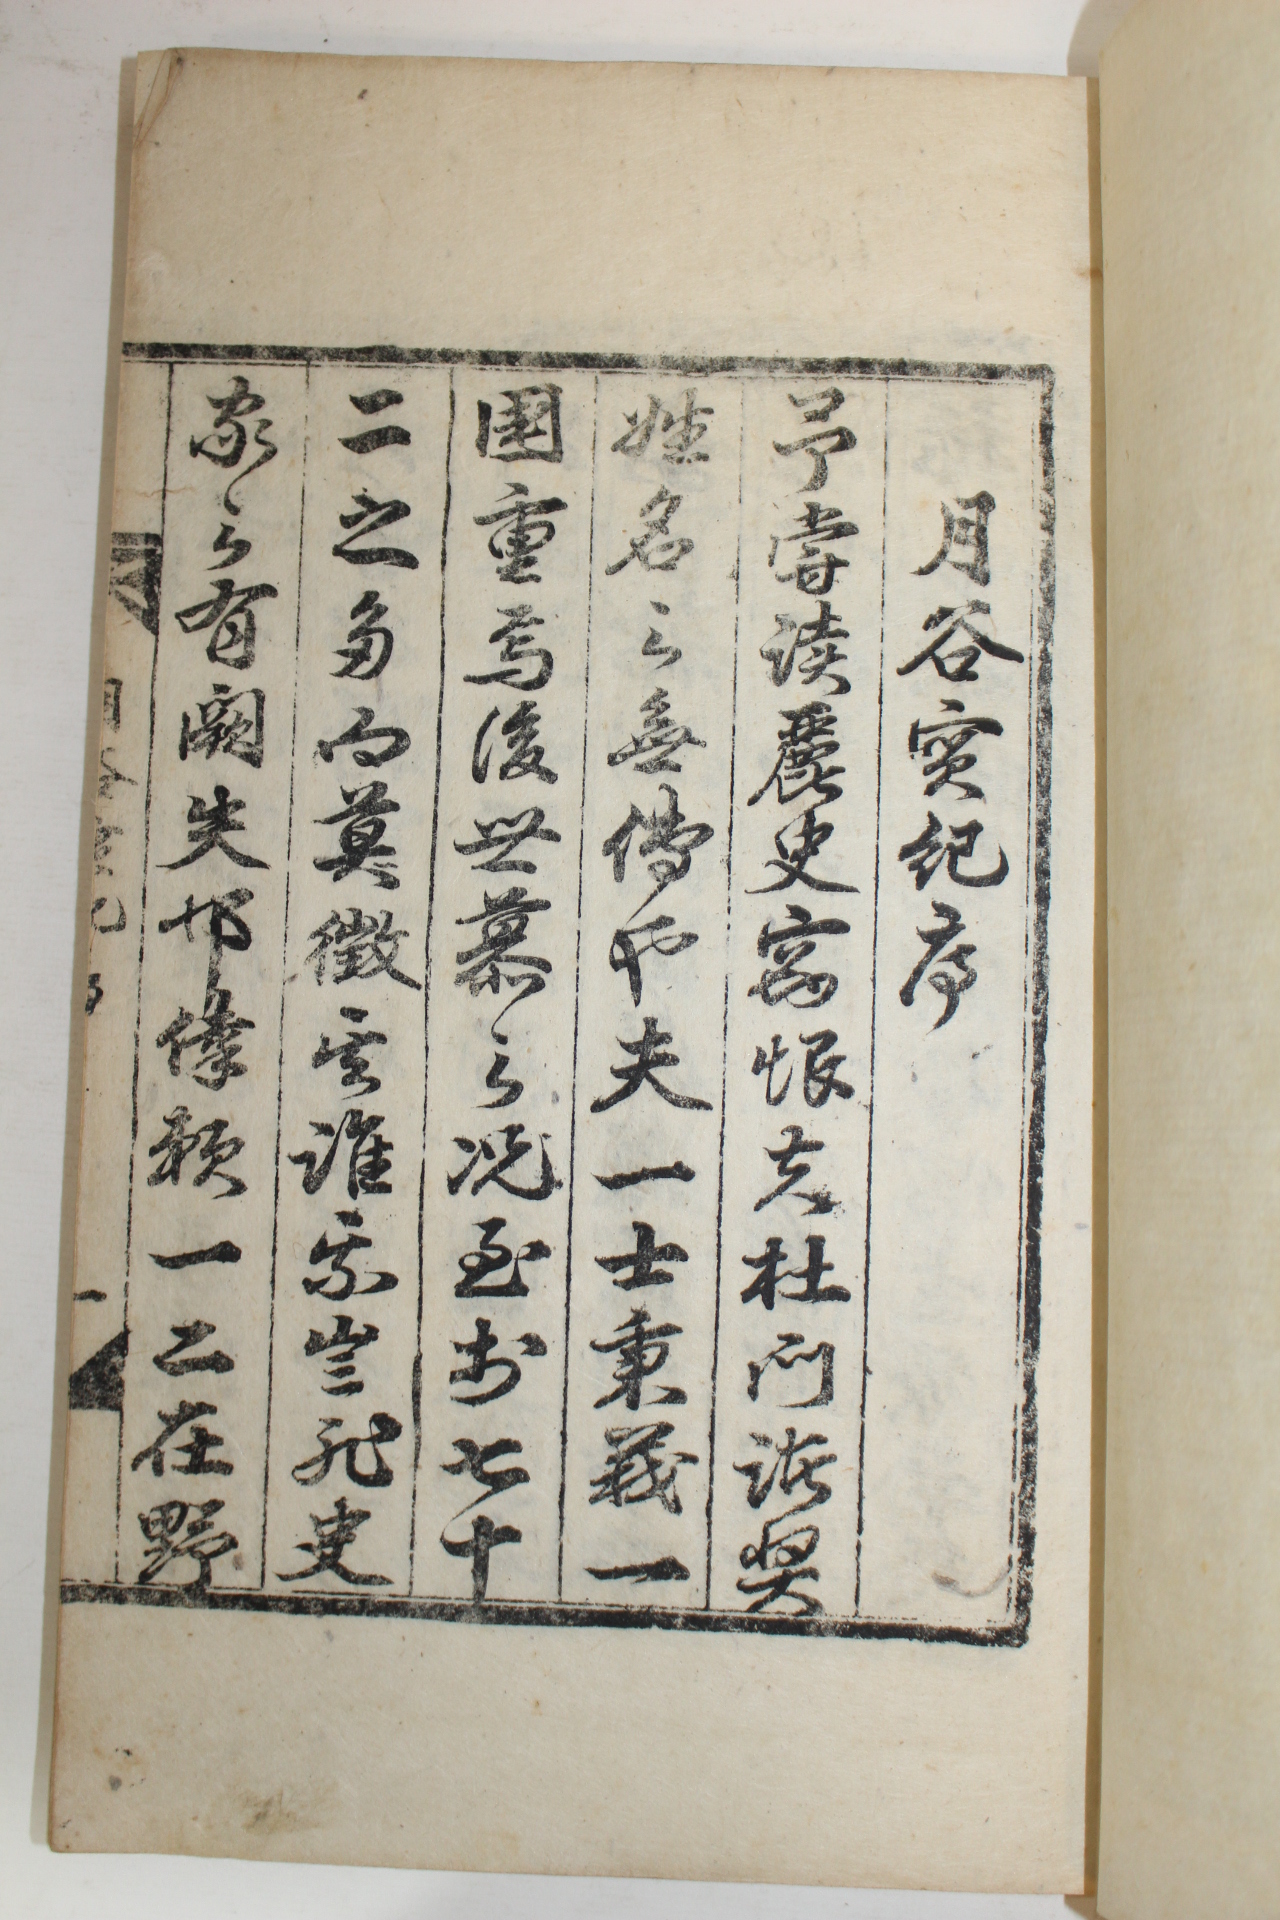 月谷實紀序
予嘗讀麗史窃恨夫杜門諸賢
姓名之無傳也夫一士秉義一
國重焉後世慕之況至於七十
二之多而莫徵誰豈非史
家之有闕失耶倖賴一二在野
月谷實紀序
一